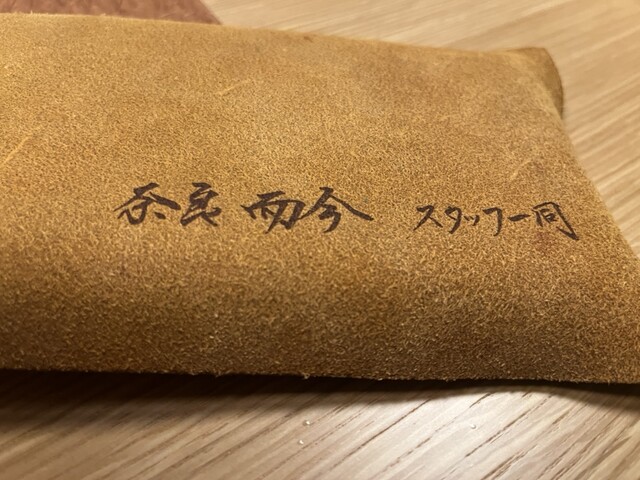 奈良 而今 スタッフ一同